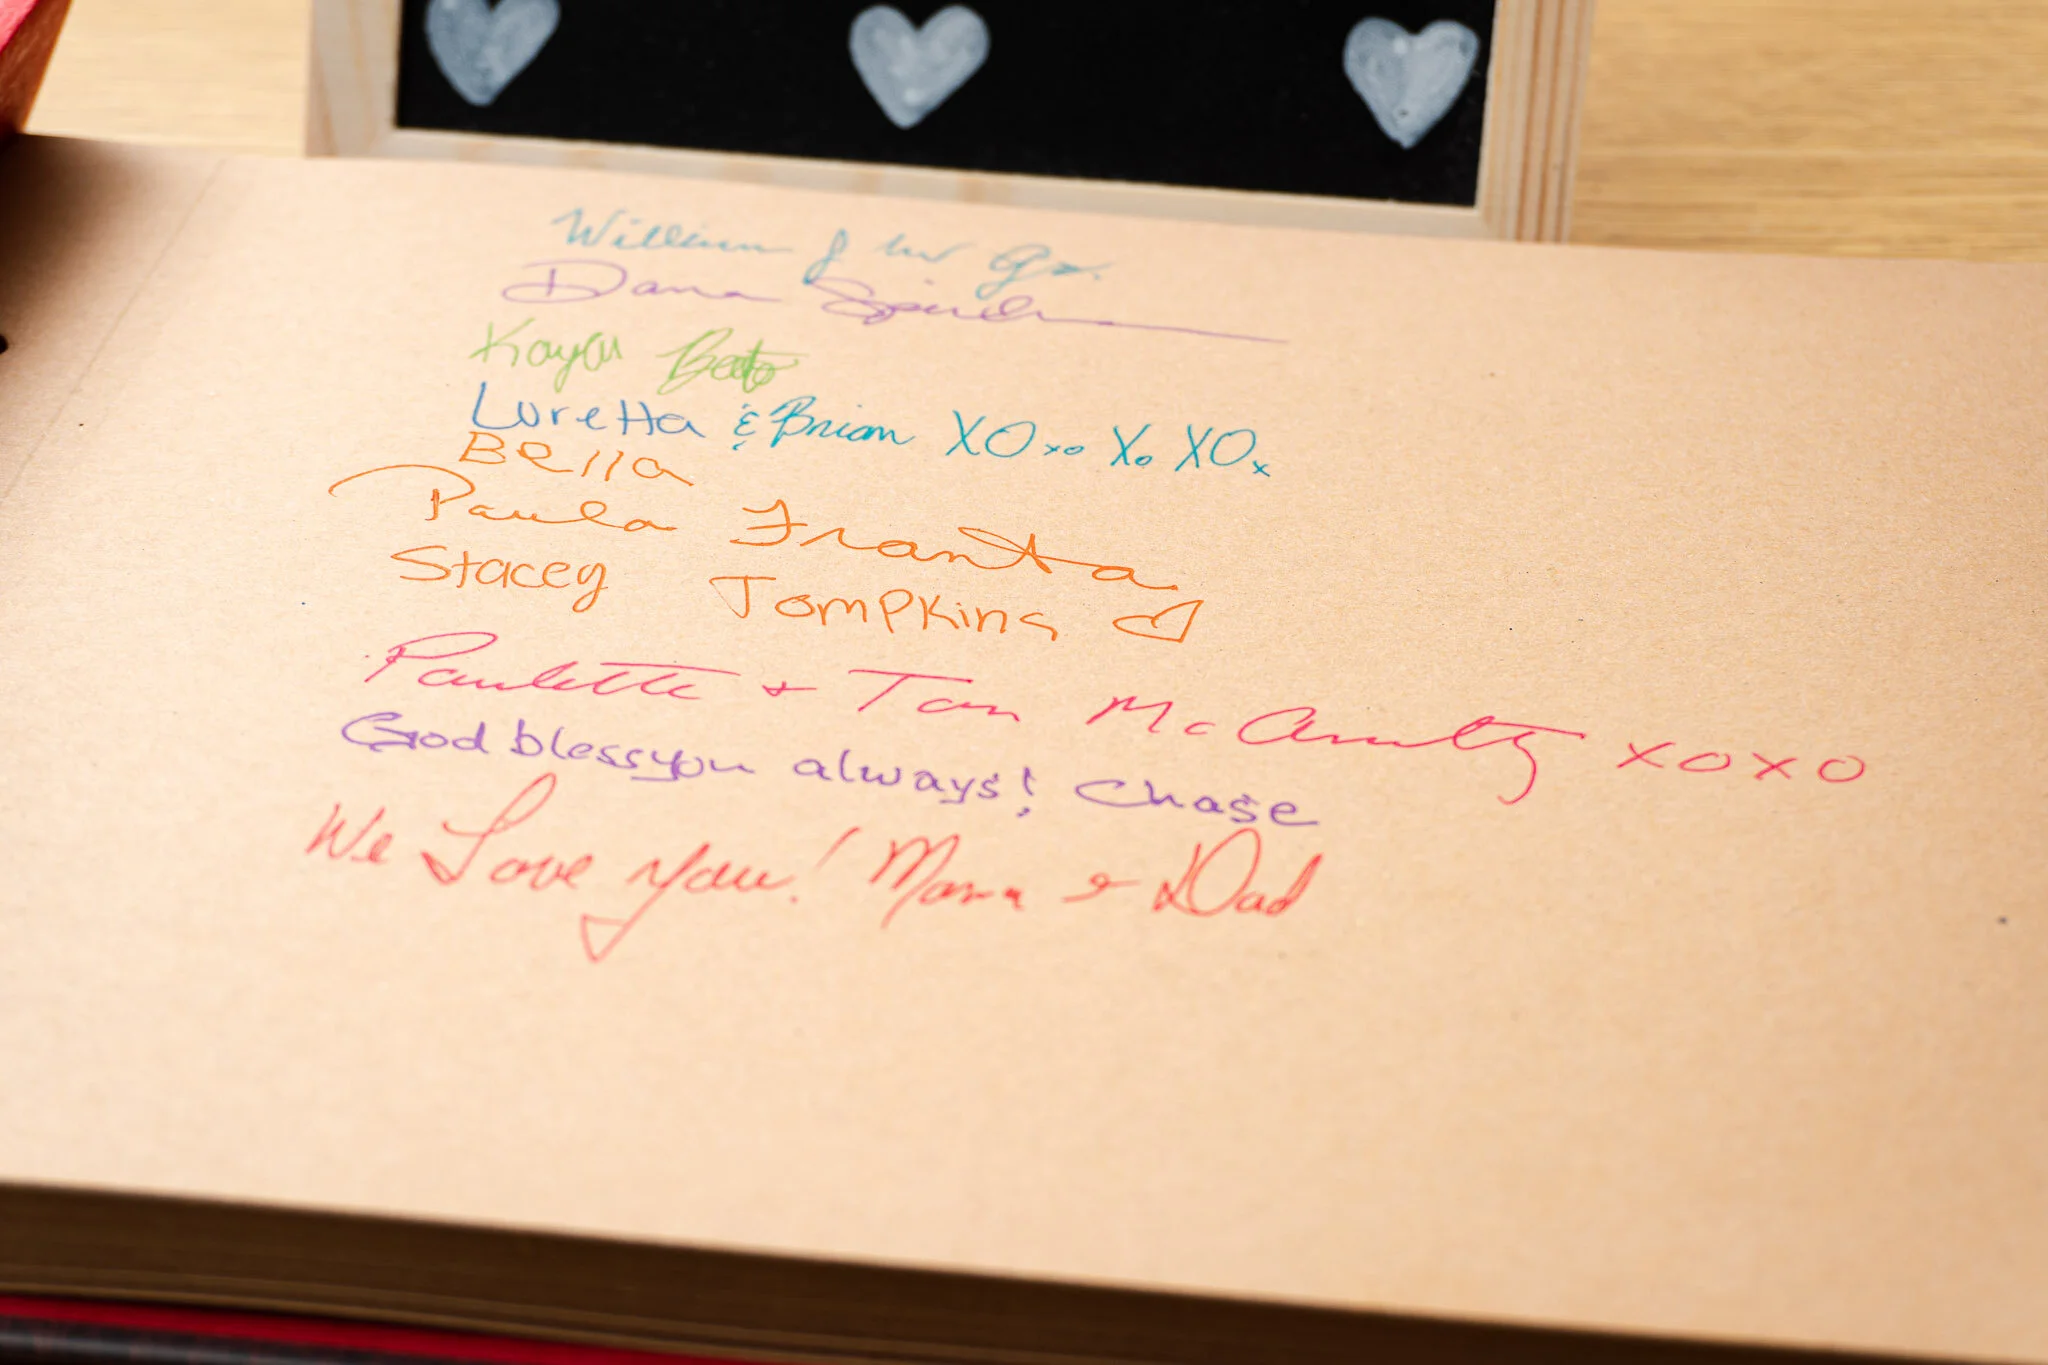 William J
Dana
Kayla
Loretta & Brian XOxo Xo XOx
Bella
Paula Franta
Stacey Tompkins
Paulette + Tom McAnulty xoxo
God bless you always! Chase
We Love you! Mom & Dad